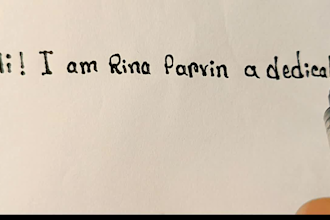 Hi! I am Rina Parvin a dedica